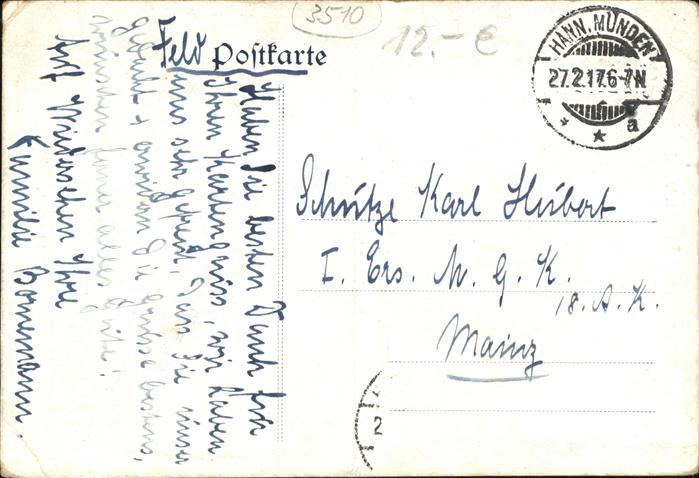 3510
12.- €
Feld Postkarte
HANN. MÜNDEN
27.2.17.6-7N.
a
Haben Sie besten Dank für
Ihren Kartengruss, wir haben
uns sehr gefreut, dass Sie unser
gedacht + erwidern die Grüsse bestens,
wünschen Ihnen alles Gute!
Auf Wiedersehen Ihre
Familie Bornemann.
Schütze Karl Hubert
I. Ers. M. G. K.
18. A. K.
Mainz
2